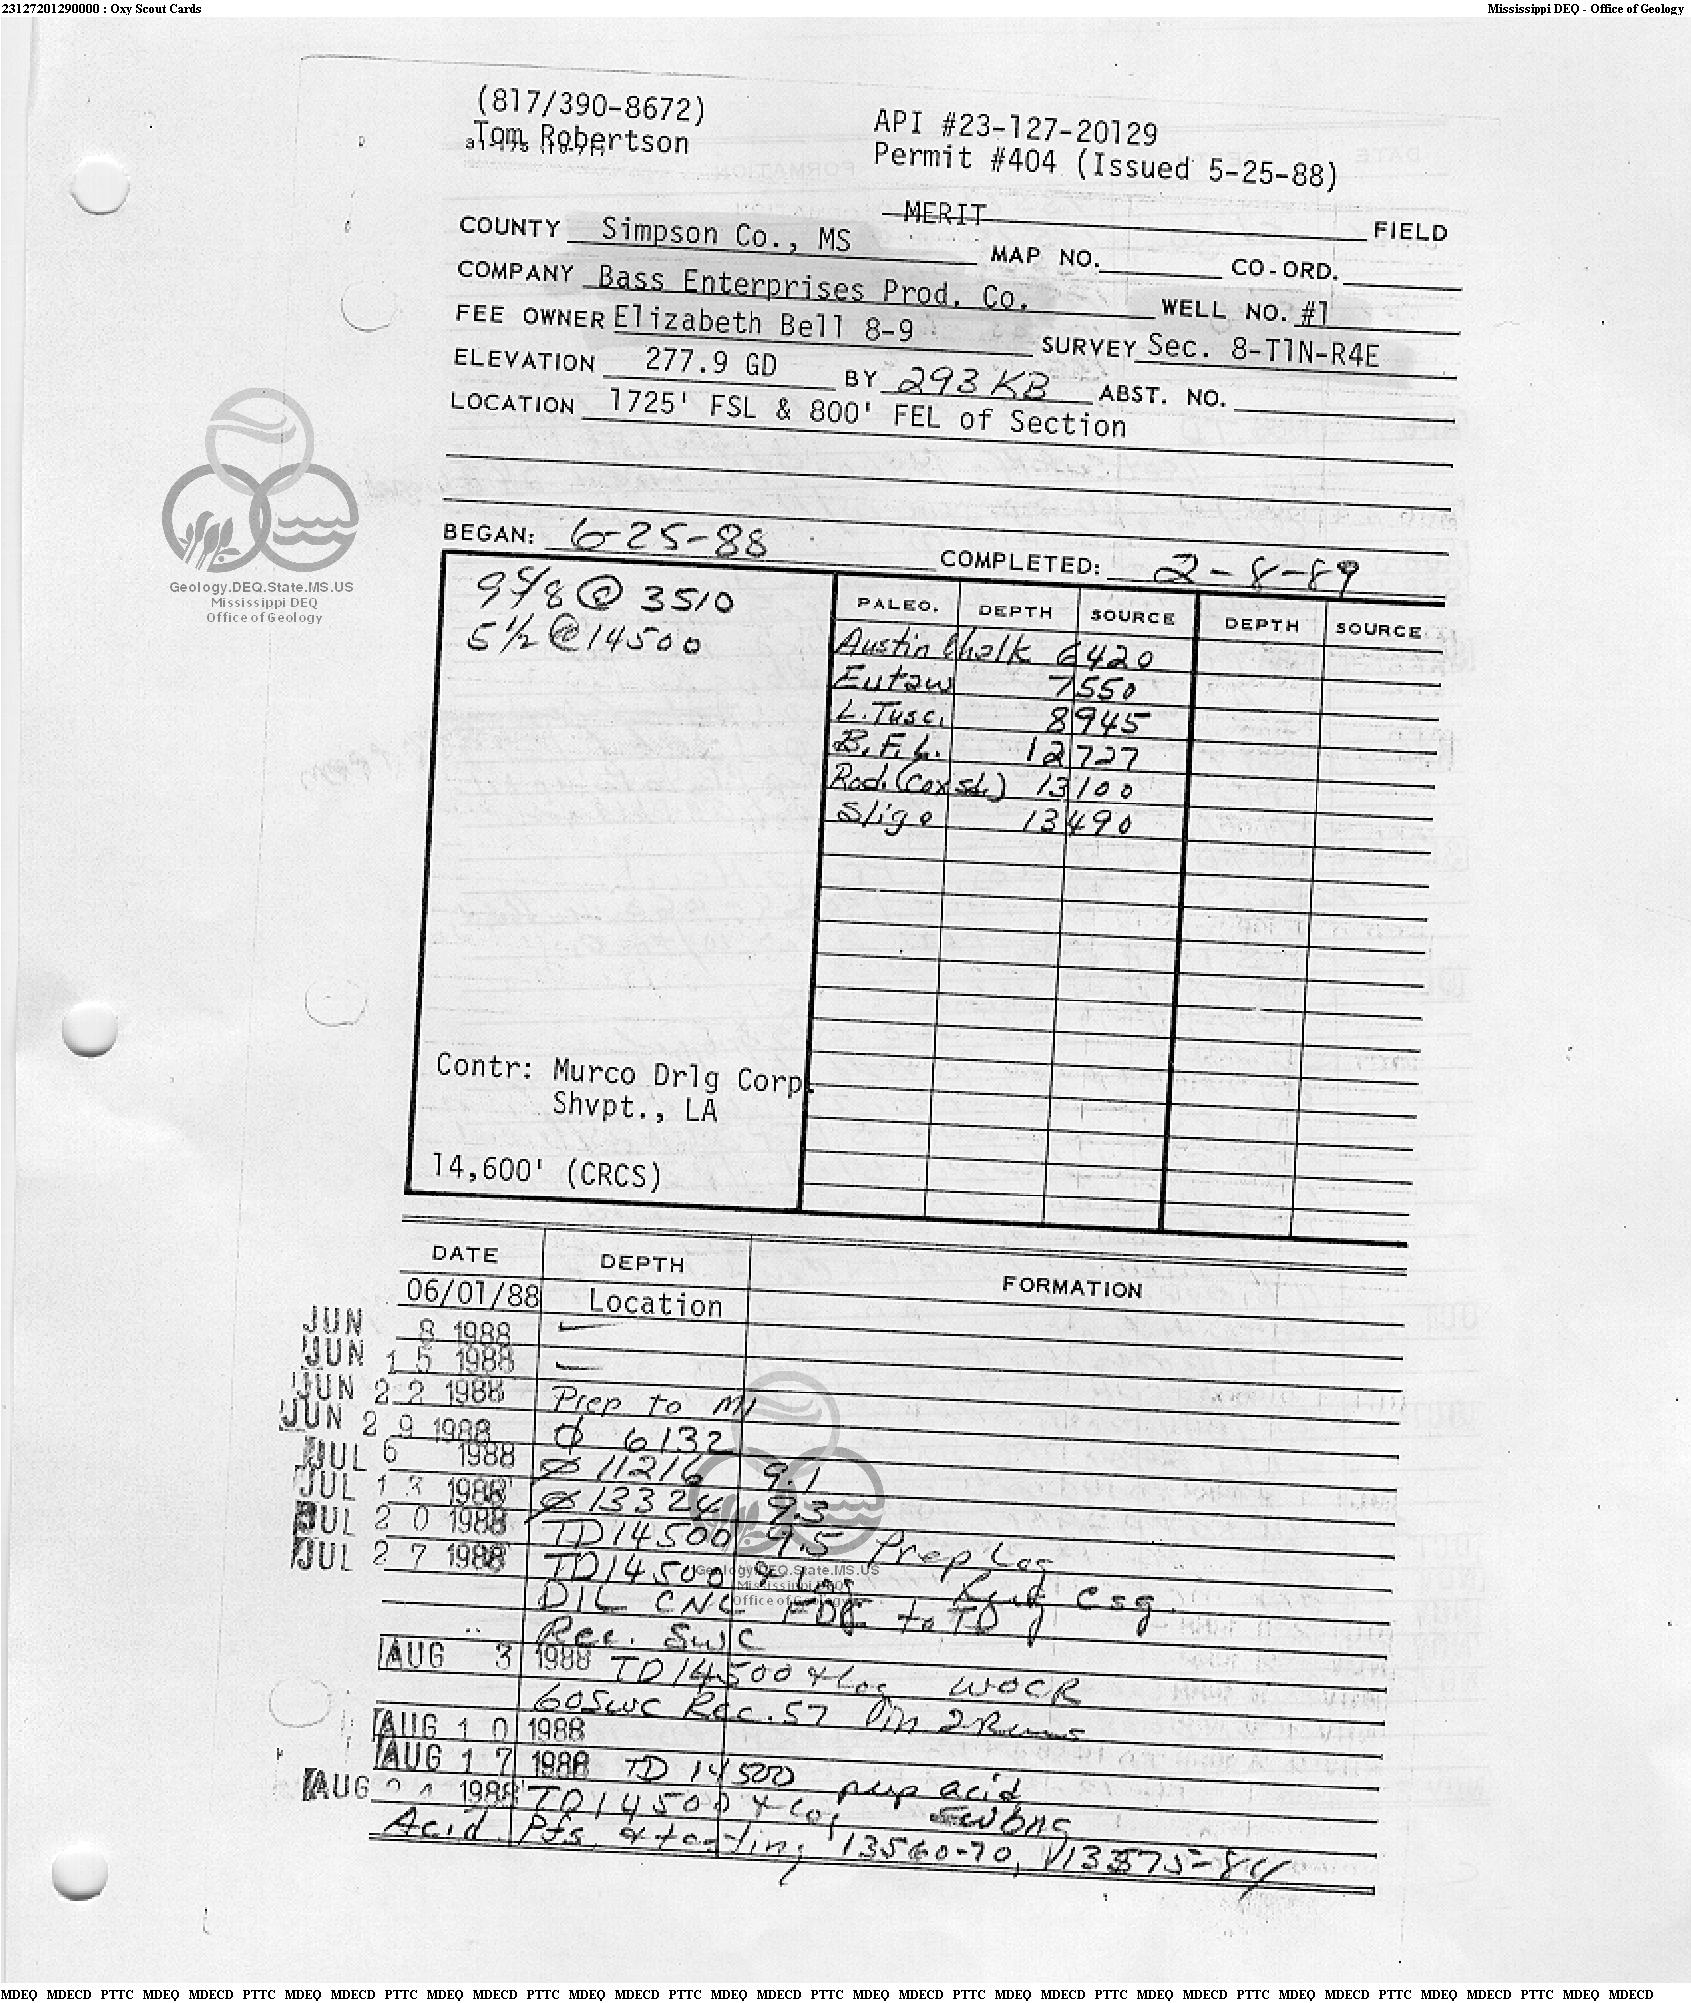 23127201290000 : Oxy Scout Cards
Mississippi DEQ - Office of Geology
(817/390-8672)
Tom Robertson
API #23-127-20129
Permit #404 (Issued 5-25-88)
MERIT FIELD
COUNTY Simpson Co., MS MAP NO. CO-ORD.
COMPANY Bass Enterprises Prod. Co. WELL NO. #1
FEE OWNER Elizabeth Bell 8-9 SURVEY Sec. 8-T1N-R4E
ELEVATION 277.9 GD BY 293 KB ABST. NO.
LOCATION 1725' FSL & 800' FEL of Section
Geology.DEQ.State.MS.US
Mississippi DEQ
Office of Geology
BEGAN: 6-25-88 COMPLETED: 2-8-89
9 5/8 @ 3510
5 1/2 @ 14500
PALEO. DEPTH SOURCE DEPTH SOURCE
Austin Chalk 6420
Eutaw 7550
L. Tusc. 8945
B.F.L. 12727
Rod. (Cox sd.) 13100
Sligo 13490
Contr: Murco Drlg Corp.
Shvpt., LA
14,600' (CRCS)
DATE DEPTH FORMATION
06/01/88 Location
JUN 8 1988
JUN 15 1988
JUN 22 1988 Prep to MI
JUN 29 1988 Ø 6132
JUL 6 1988 Ø 11216 9.1
JUL 13 1988 Ø 13324 9.3
JUL 20 1988 TD 14500 9.5 Prep Log
JUL 27 1988 TD 14500 & Log Rung Csg.
DIL CNL FDC to TD
Rec. SWC
AUG 3 1988 TD 14500 & Log WOCR
60 SWC Rec. 57 in 2 Runs
AUG 10 1988
AUG 17 1988 TD 14500 prep acid
AUG 1988 TD 14500 & Log Swbng
Acid Pfs & testing 13560-70, 13575-84
Geology.DEQ.State.MS.US
Mississippi DEQ
Office of Geology
MDEQ MDECD PTTC MDEQ MDECD PTTC MDEQ MDECD PTTC MDEQ MDECD PTTC MDEQ MDECD PTTC MDEQ MDECD PTTC MDEQ MDECD PTTC MDEQ MDECD PTTC MDEQ MDECD PTTC MDEQ MDECD PTTC MDEQ MDECD PTTC MDEQ MDECD